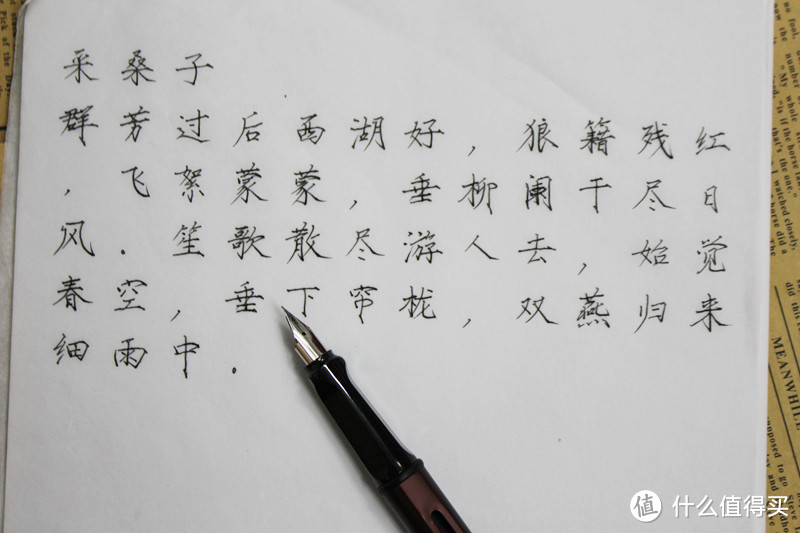 采桑子
群芳过后西湖好,狼籍残红
,飞絮蒙蒙,垂柳阑干尽日
风.笙歌散尽游人去,始觉
春空,垂下帘栊,双燕归来
细雨中.
no fool,
"My whole
that's the one."
watched closely,
MEANWHILE
值 什么值得买